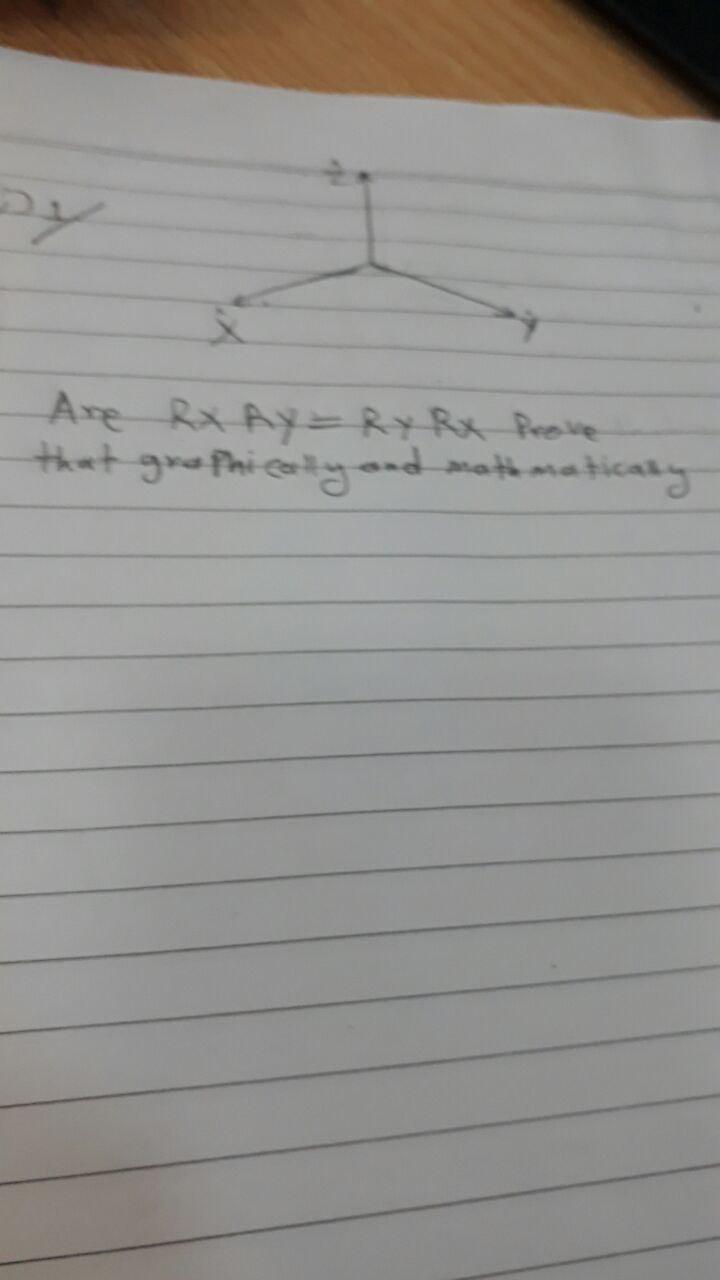 Z
X
Y
Are RX RY = RY RX Prove
that graphically and mathmaticaly